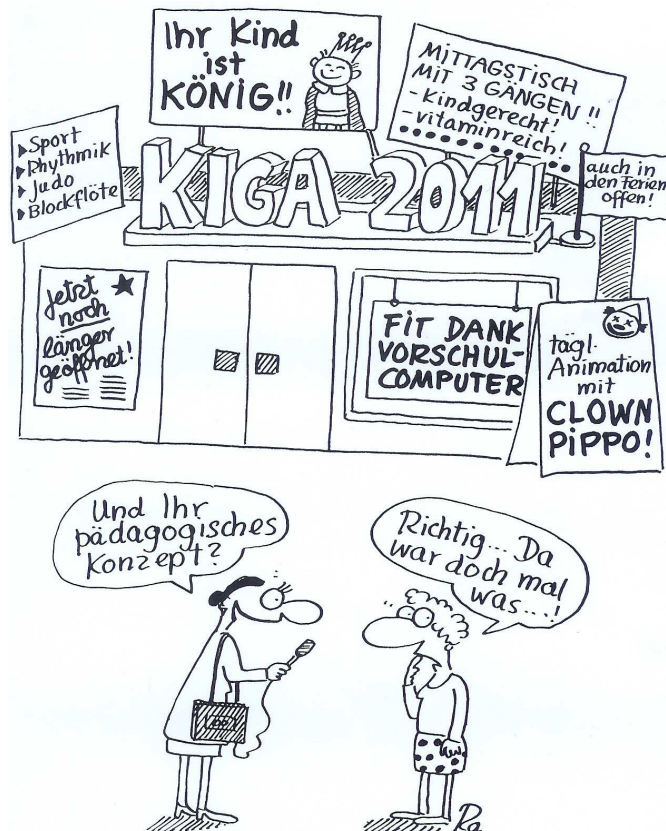 Ihr Kind
ist
KÖNIG!!
MITTAGSTISCH
MIT 3 GÄNGEN!!
-Kindgerecht!
-vitaminreich!
▸Sport
▸Rhythmik
▸Judo
▸Blockflöte
KIGA 2011
auch in
den Ferien
offen!
Jetzt
noch
länger
geöffnet!
FIT DANK
VORSCHUL-
COMPUTER
tägl.
Animation
mit
CLOWN
PIPPO!
Und Ihr
pädagogisches
Konzept?
Richtig... Da
war doch mal
was....!